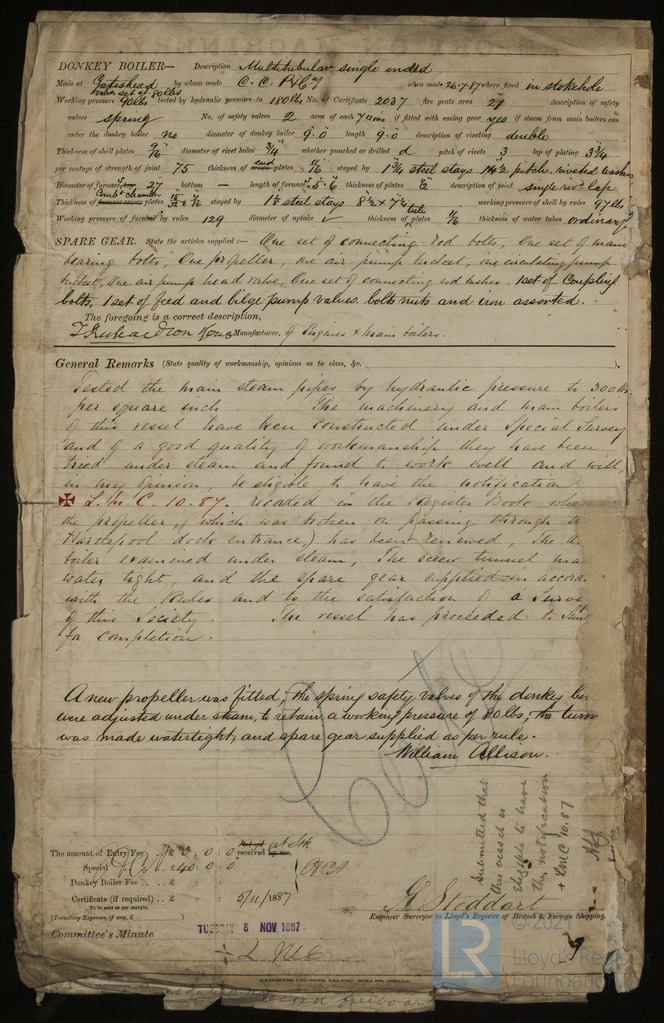 DONKEY BOILER— Description Multitubular single ended
Made at Gateshead by whom made when made 26.7.87 where fixed in stokehole
valve set at 80lbs
Working pressure 90lbs tested by hydraulic pressure to 180lbs No. of Certificate 2037 fire grate area 21 description of safety
valves spring No. of safety valves 2 area of each 7 if fitted with easing gear yes if steam from main boilers can
enter the donkey boiler no diameter of donkey boiler 9.0 length 9.0 description of riveting double
Thickness of shell plates 9/16 diameter of rivet holes 3/4 whether punched or drilled d pitch of rivets 3 lap of plating 3 3/4
per centage of strength of joint 75 thickness of end plates 11/16 stayed by 1 3/4 steel stays riveted washers
Diameter of furnace 27 bottom — length of furnace 5.6 thickness of plates 1/2 description of joint single riv lap
Comb. chamber
Thickness of plates stayed by steel stays 8 1/2 × 7 1/2 working pressure of shell by rules 97 lbs
Working pressure of furnace by rules 129 diameter of uptake thickness of tube plates 11/16 thickness of water tubes ordinary
SPARE GEAR. State the articles supplied:— One set of connecting rod bolts, One set of main
bearing bolts, One propeller, one air pump bucket, one circulating pump
bucket, One air pump head valve, One set of connecting rod bushes. 1 set of Coupling
bolts, 1 set of feed and bilge pump valves. bolts nuts and iron assorted.
The foregoing is a correct description,
T Richardson & Sons Manufacturer. of Engines & main boilers.
General Remarks (State quality of workmanship, opinions as to class, &c. ).
Tested the main steam pipes by hydraulic pressure to 300 lbs
per square inch The machinery and main boilers
of this vessel have been constructed under Special Survey
and of a good quality of workmanship they have been
tried under steam and found to work well and will
in my opinion be eligible to have the notification
✠ L.M.C. 10.87. recorded in the Register Book when
the propeller, (which was broken on passing through the
Hartlepool dock entrance) has been renewed, The d
boiler examined under steam, The screw tunnel ma
water tight, and the spare gear supplied in accor
with the Rules and to the satisfaction of a Surve
of this Society. The vessel has proceeded to Sun
for completion.
A new propeller was fitted; the spring safety valves of the donkey bo
were adjusted under steam, to retain a working pressure of 80 lbs; the tunn
was made watertight, and spare gear supplied as per rule.
William Allison.
Submitted that
this vessel is
eligible to have
the notification
+ LMC 10.87
The amount of Entry Fee £ 2 : 0 : 0 received by me,
Special £ 40 : 0 : 0
Donkey Boiler Fee £ : :
Certificate (if required) £ : : 5/11/1887
To be sent as per margin.
(Travelling Expenses, if any, £ )
G Stoddart
Engineer Surveyor to Lloyd's Register of British & Foreign Shipping.
Committee's Minute TUESDAY 8 NOV 1887
+ L M C
LR
Lloyd's Register
Foundation